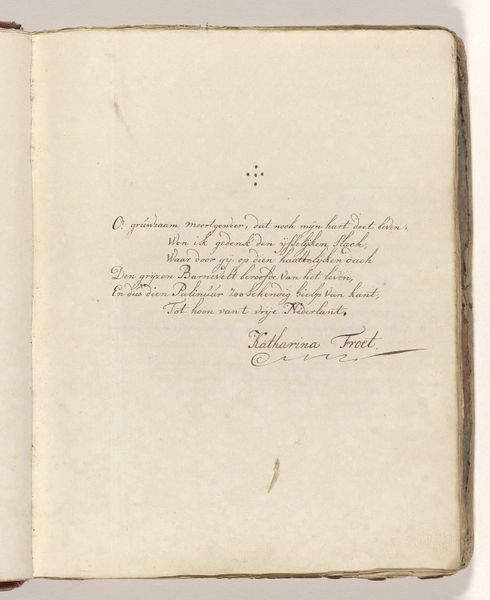 O! gruwzaam moortgeweer, dat noch mijn hart doet beven,
Wen ik gedenk den ysselyken slach,
Waar door gy, op dien haattelyken dach
Den gryzen Barnevelt beroofde van het leven,
En dus dien Palinuur zoo schendig hielp van kant,
Tot hoon van't vrije Nederlant.
Katharina Froet.